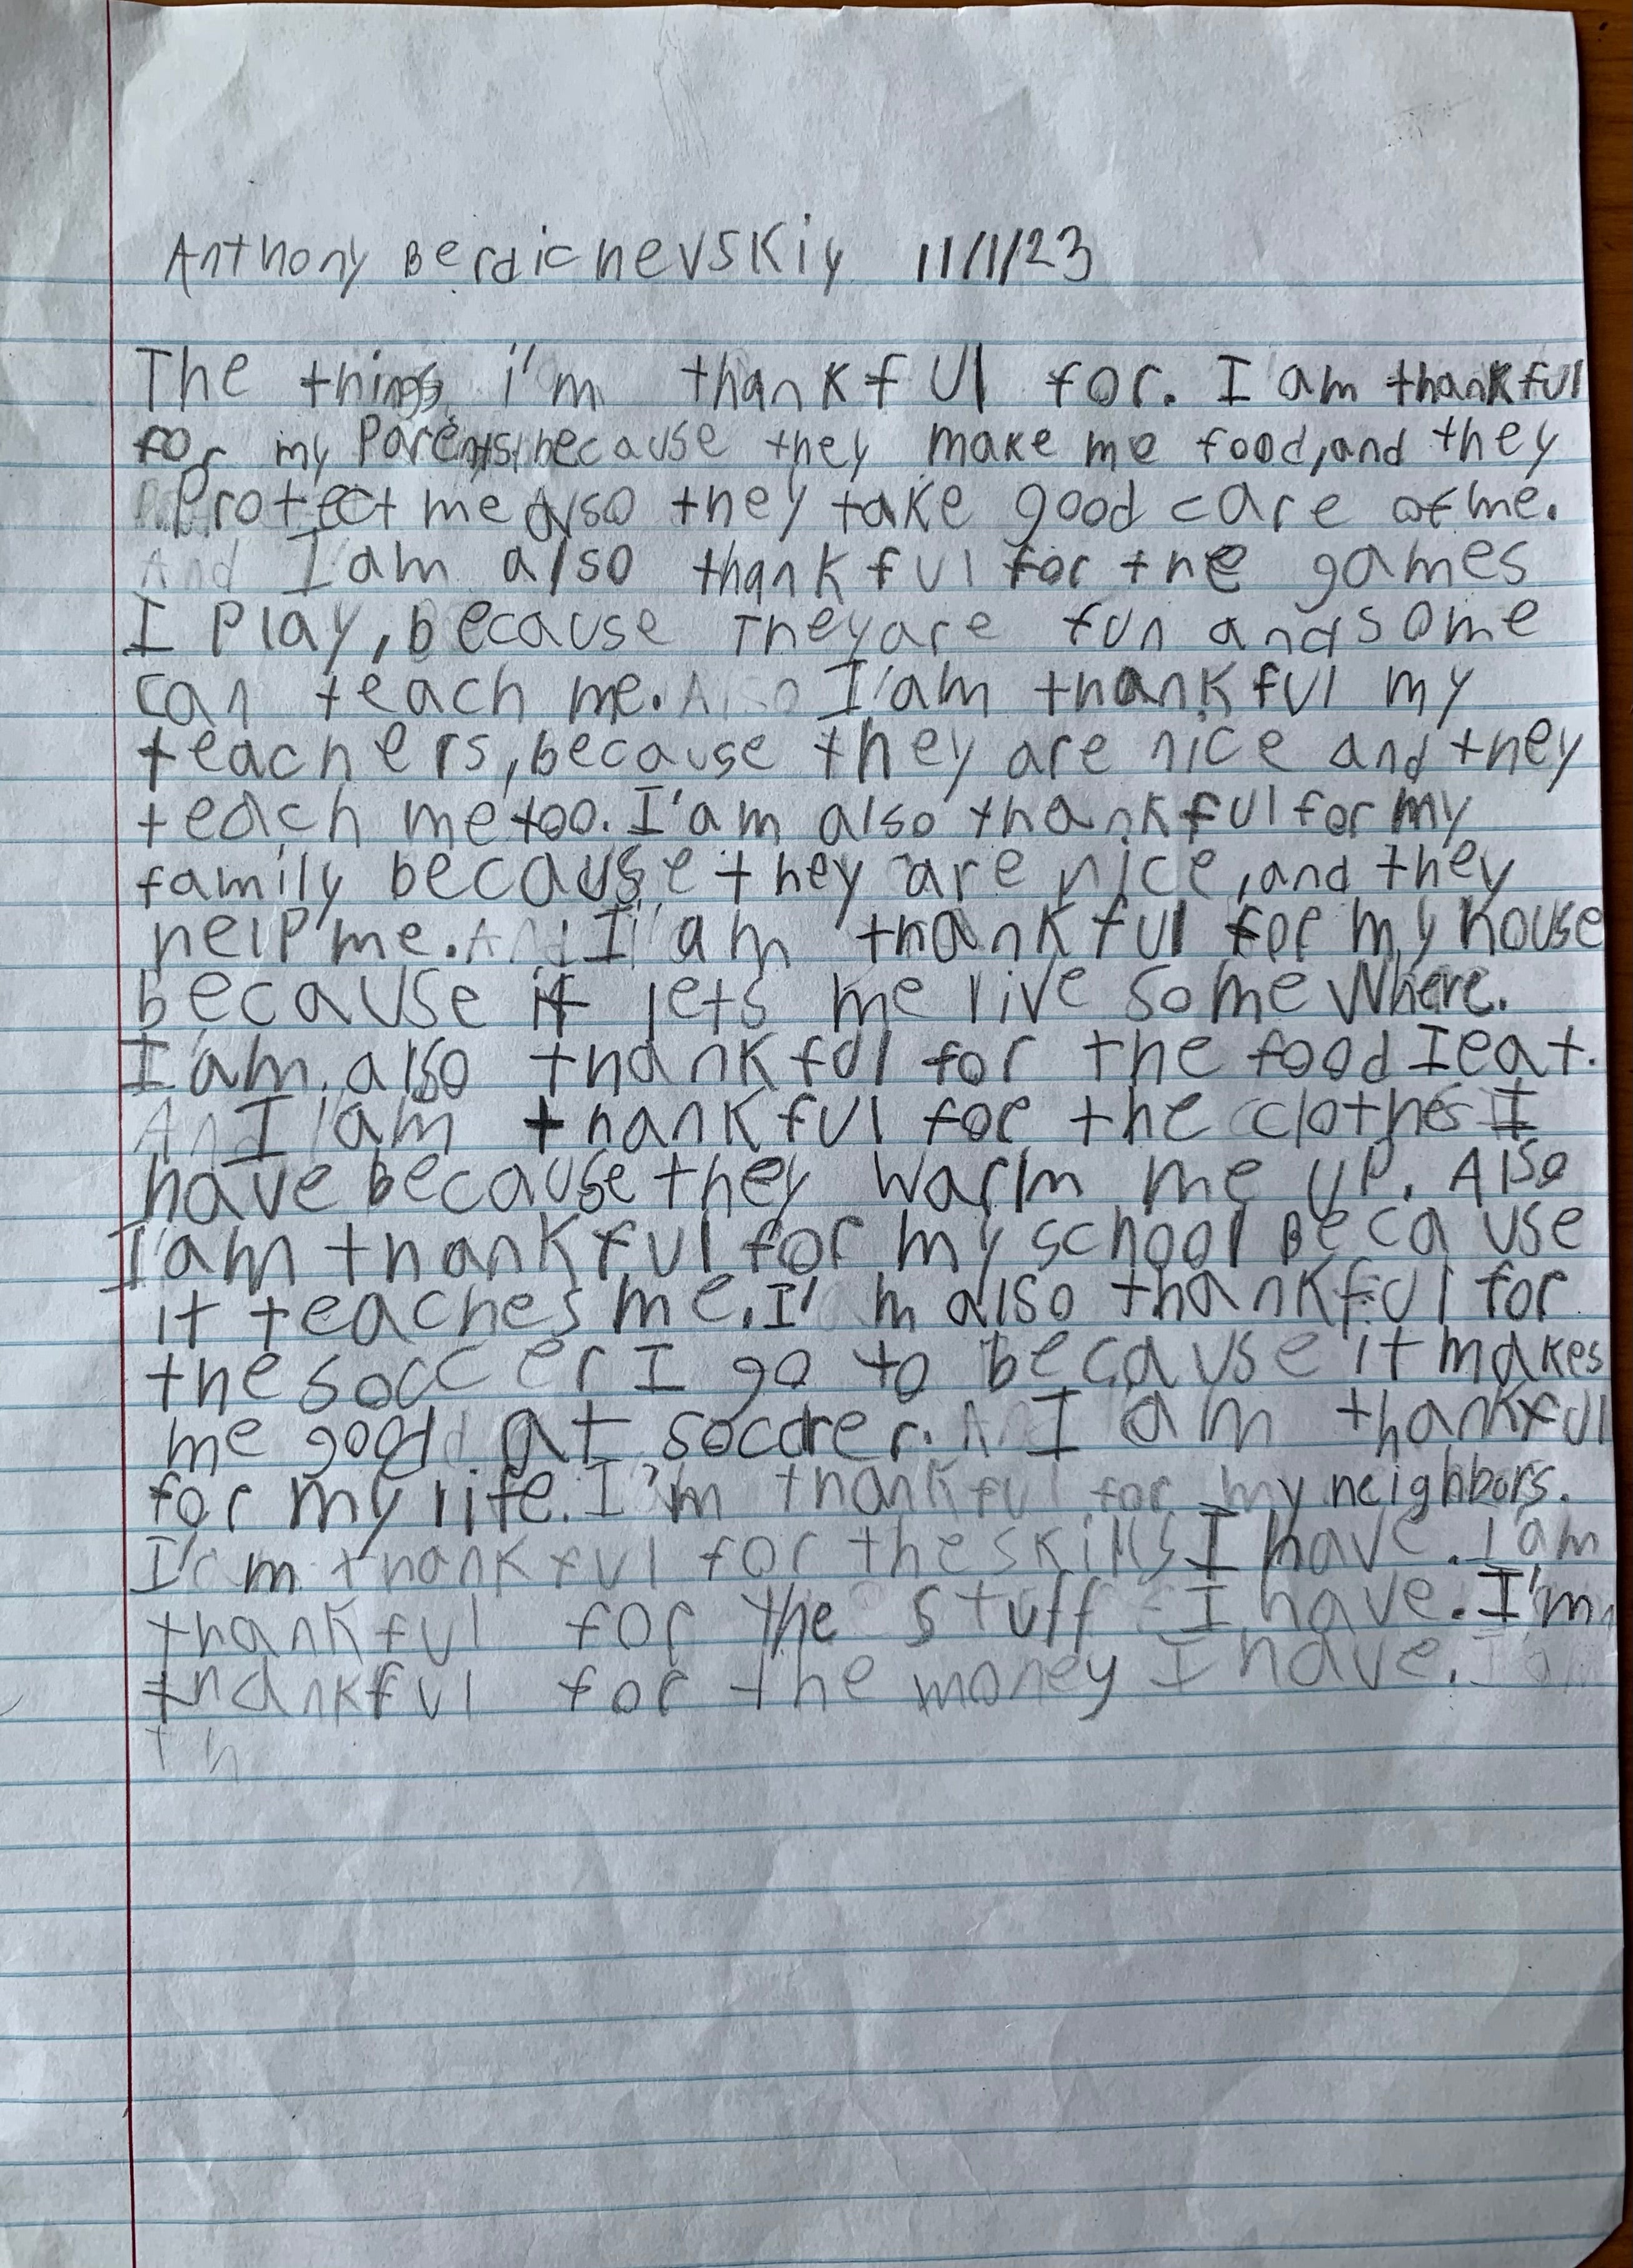 Anthony Berdichevskiy 11/1/23
The things i'm thankful for. I am thankful
for my Parents, because they make me food, and they
Protect me Also they take good care of me.
I am also thankful for the games
I Play, because They are fun and some
can teach me. I'am thankful my
teachers, because they are nice and they
teach me too. I'am also thankful for my
family because they are nice, and they
help me. I am thankful for my house
because it lets me live some Where.
I'am also thankful for the food I eat.
I am thankful for the clothes I
have because they warm me up. Also
I am thankful for my school Because
it teaches me. I'm also thankful for
the soccer I go to because it makes
me good at soccer. I am thankful
for my life. I'm thankful for my neighbors.
I'm thankful for the skills I have. I am
thankful for the stuff I have. I'm
thankful for the money I have.